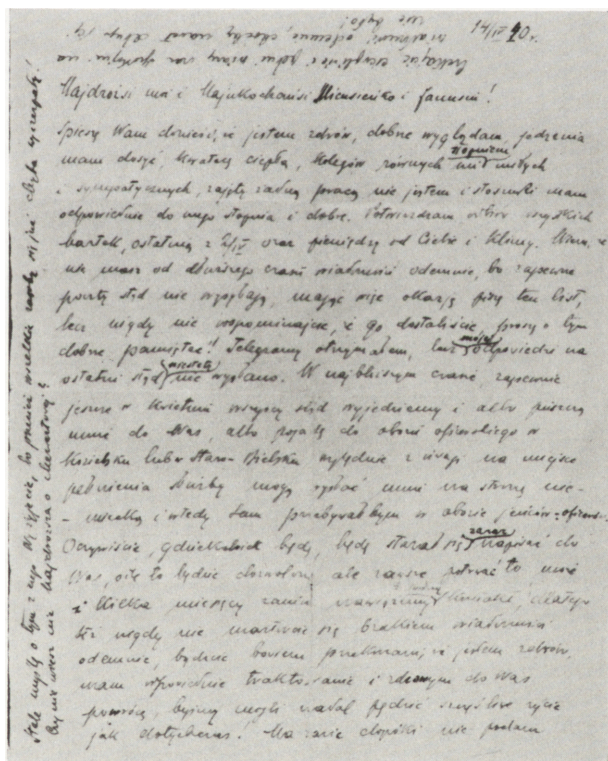 14/IV 40r.
Najdrożsi moi i Najukochańsi Mieusieńko i Janusiu!
Spieszę Wam donieść, iż jestem zdrów, dobrze wyglądam, jedzenia
mam dosyć, kwaterę ciepłą, kolegów
i sympatycznych, zajęty żadną pracą nie jestem i stosunki mam
odpowiednie do mego stopnia i dobre. Potwierdzam odbiór wszystkich
kartek, ostatnią z oraz pieniędzy od Ciebie i Klimy. Wiem, że
nie masz od dłuższego czasu wiadomości odemnie, bo zapewne
poczty stąd nie wysyłają, mając więc okazję piszę ten list,
lecz nigdy nie wspominajcie, iż go dostaliście, proszę o tym
dobrze pamiętać! Telegramy otrzymałem, lecz mojej odpowiedzi na
ostatni stąd niestety nie wysłano. W najbliższym czasie, zapewnie
jeszcze w kwietniu wszyscy stąd wyjedziemy i albo puszczą
mnie do Was, albo pojadę do obozu oficerskiego w
Kozielsku lub Staro-Bielsku względnie z uwagi na miejsce
pełnienia służby mogą wysłać mnie na stronę nie-
-miecką i wtedy tam przebywałbym w obozie jeńców-oficerów.
Oczywiście, gdziekolwiek będę, będę starał się zaraz napisać do
Was, o ile to będzie dozwolone, ale zawsze potrwać to może
i kilka miesięcy zanim nawiążemy kontakt, dlatego
też nigdy nie martwcie się brakiem wiadomości
odemnie, bądźcie bowiem przekonani, iż jestem zdrów,
mam odpowiednie traktowanie i zdrowym do Was
powrócę, byśmy mogli nadal pędzić szczęśliwe życie
jak dotychczas. Na razie dopóki nie podam
Stale myślę o tym z mego Wy żyjecie, bo przecież wszelkie zasoby się już chyba wyczerpały!
Czy nie wiesz nic Najdroższa o